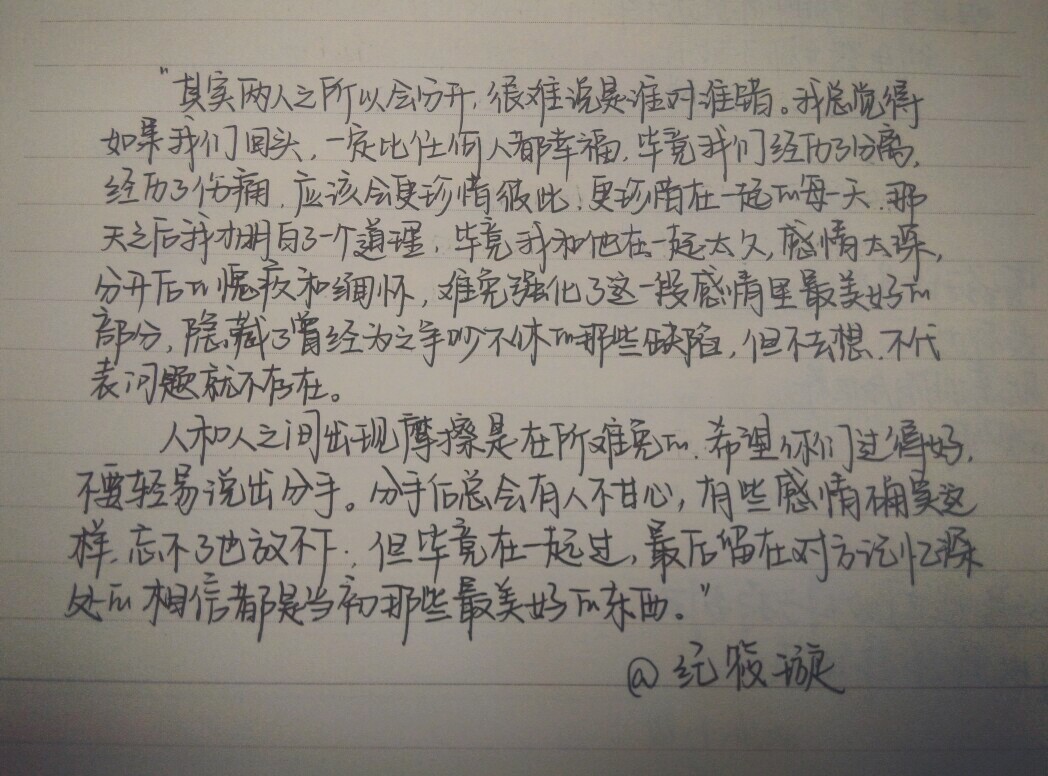 “其实两人之所以会分开,很难说是谁对谁错。我总觉得
如果我们回头,一定比任何人都幸福,毕竟我们经历了分离,
经历了伤痛,应该会更珍惜彼此,更珍惜在一起的每一天.那
天之后我才明白了一个道理,毕竟我和他在一起太久,感情太深,
分开后的愧疚和缅怀,难免强化了这一段感情里最美好的
部分,隐藏了曾经为之争吵不休的那些缺陷,但不去想.不代
表问题就不存在。
人和人之间出现摩擦是在所难免的.希望你们过得好,
不要轻易说出分手。分手后总会有人不甘心,有些感情确实这
样,忘不了也放不下,但毕竟在一起过,最后留在对方记忆深
处的相信都是当初那些最美好的东西。”
@纪筱璇